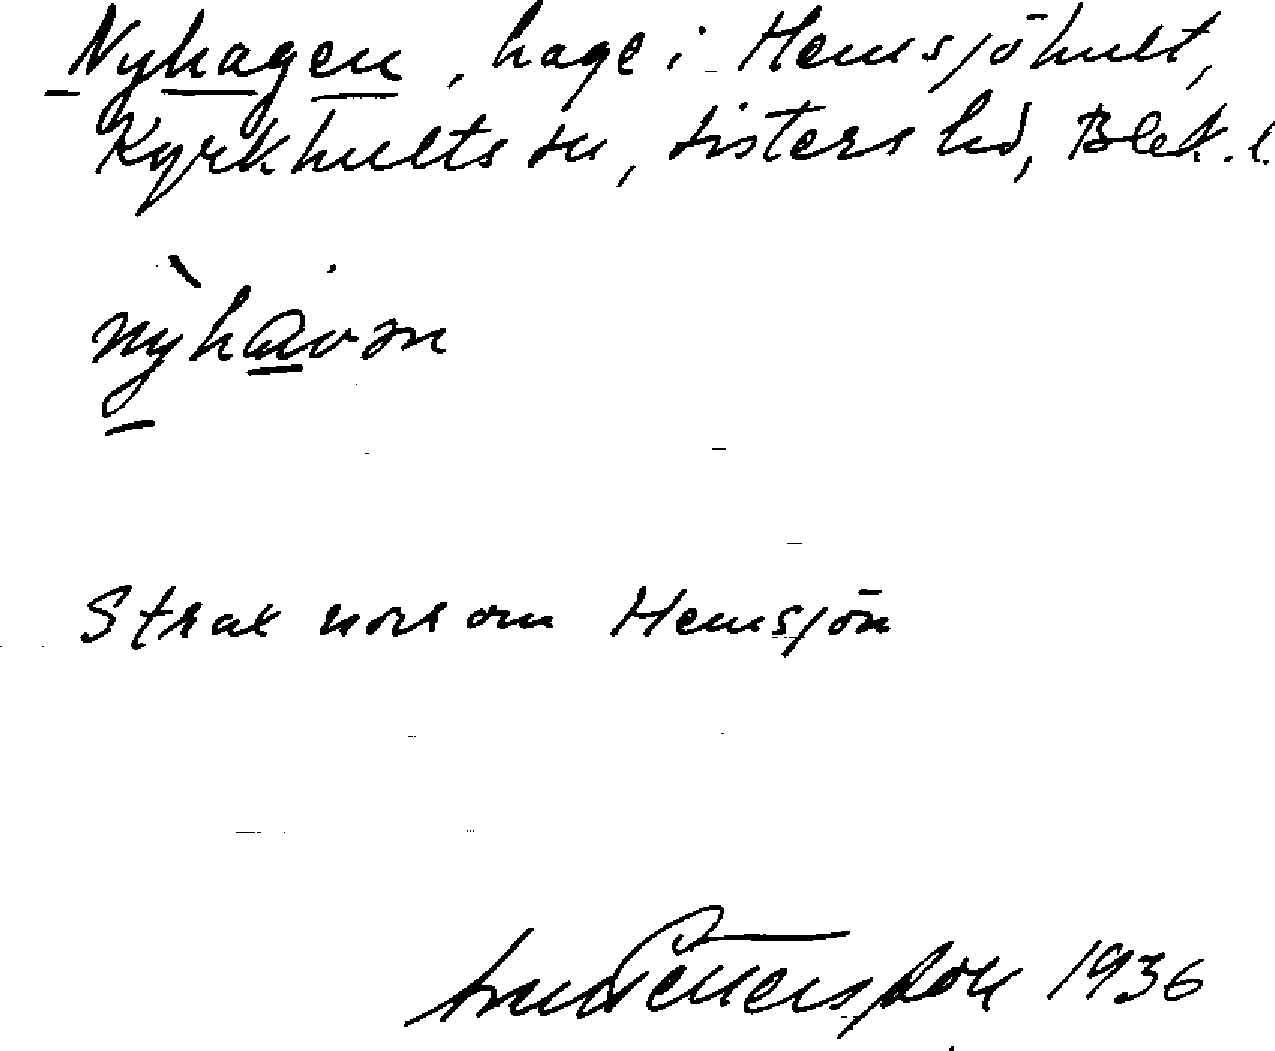 Nyhagen, hage i Hemsjöhult,
Kyrkhults sn, Listers hd, Blek. l.
nỳhavən
Strax norr om Hemsjön
Pettersson 1936